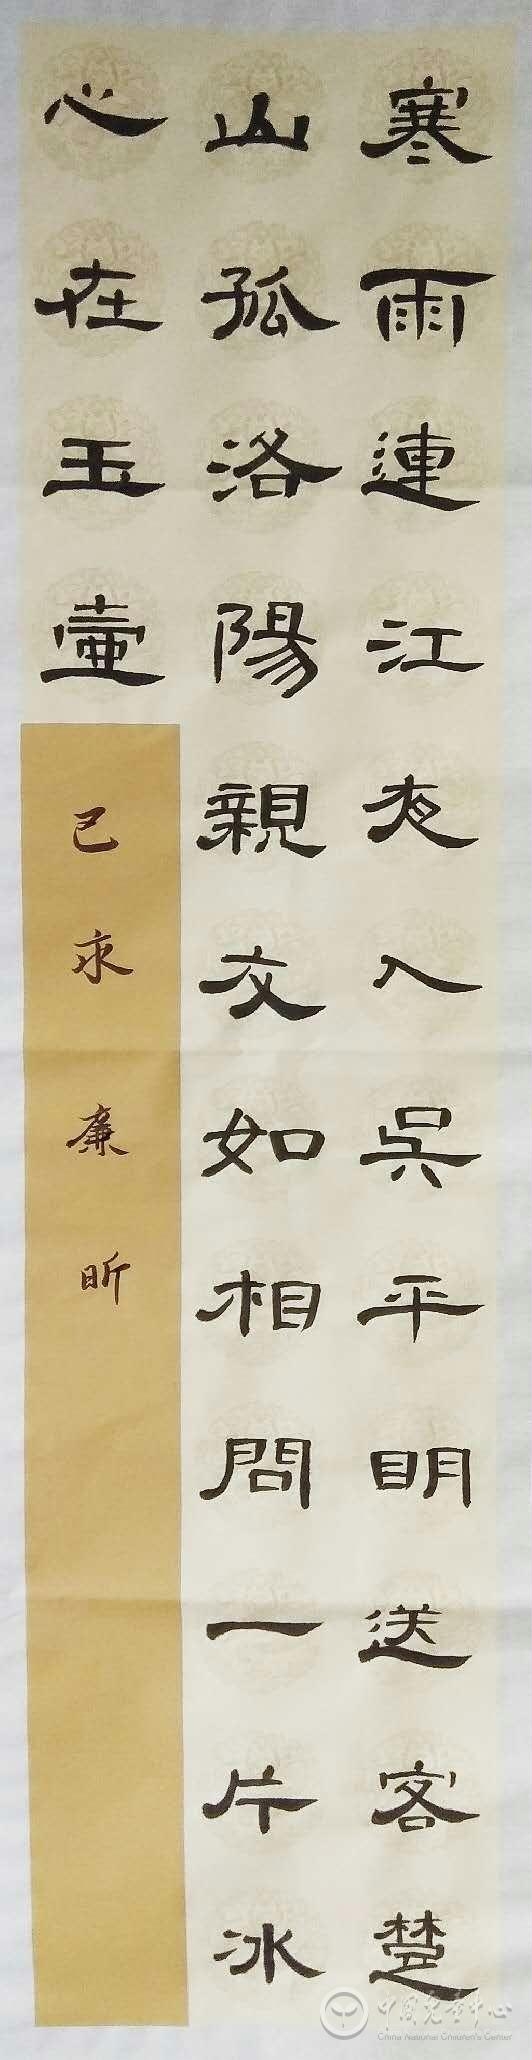 寒雨連江夜入吳平明送客楚
山孤洛陽親友如相問一片冰
心在玉壺
廉昕
中国儿童中心
China National Children's Center